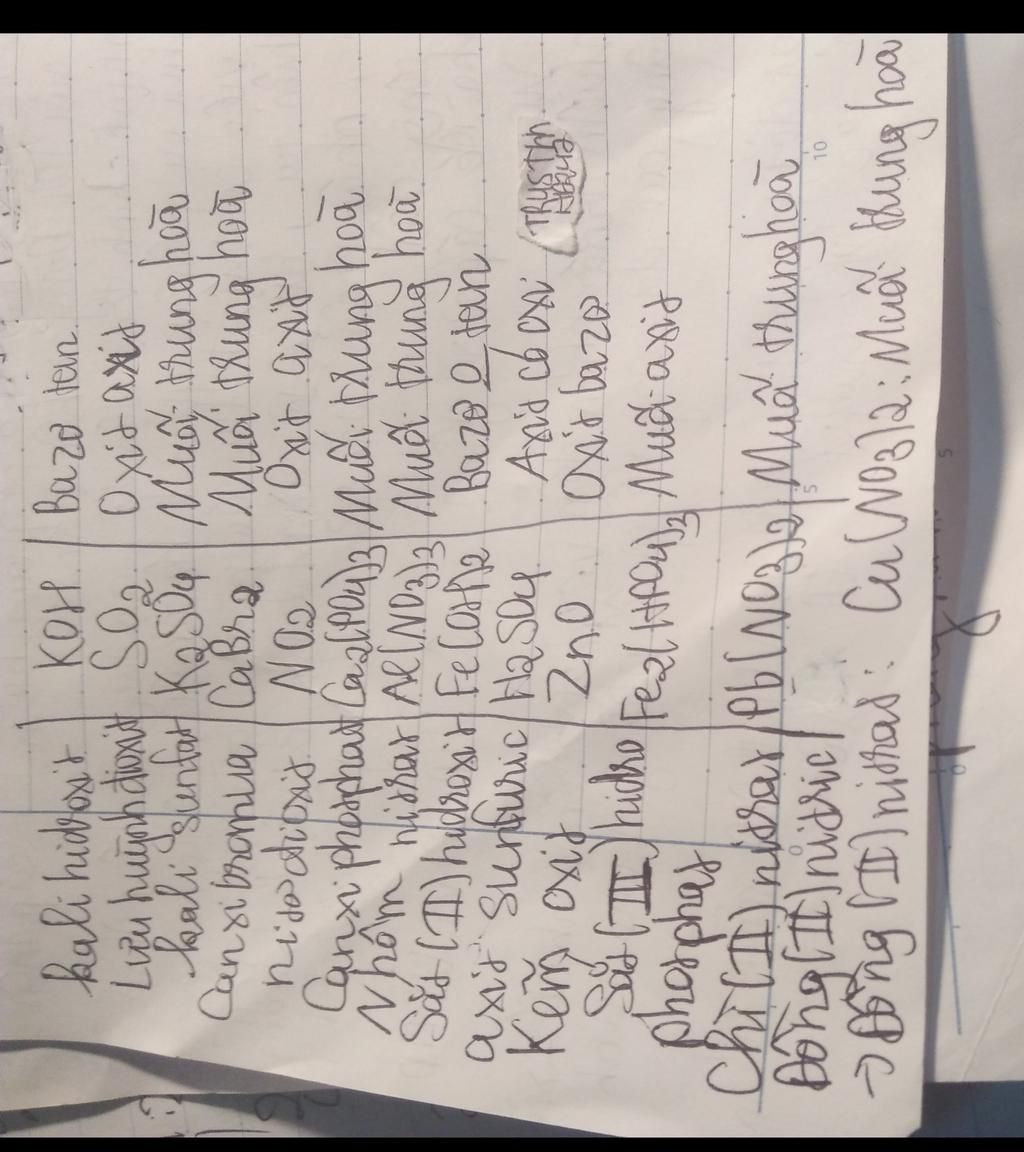 kali hidroxit KOH Bazơ tan
Lưu huỳnh đioxit SO2 Oxit axit
kali sunfat K2SO4 Muối trung hoà
Canxi bromua CaBr2 Muối trung hoà
nitơ đioxit NO2 Oxit axit
Canxi phosphat Ca2(PO4)3 Muối trung hoà
Nhôm nitrat Al(NO3)3 Muối trung hoà
Sắt (II) hidroxit Fe(OH)2 Bazơ O tan
axit Sunfuric H2SO4 Axit có oxi
Kẽm oxit ZnO Oxit bazơ
Sắt (III) hidro phosphat Fe2(HPO4)3 Muối axit
Chì (II) nitrat Pb(NO3)2 Muối trung hoà
Đồng (II) nitric
→ Đồng (II) nitrat: Cu(NO3)2: Muối trung hoà
5
10
0
5